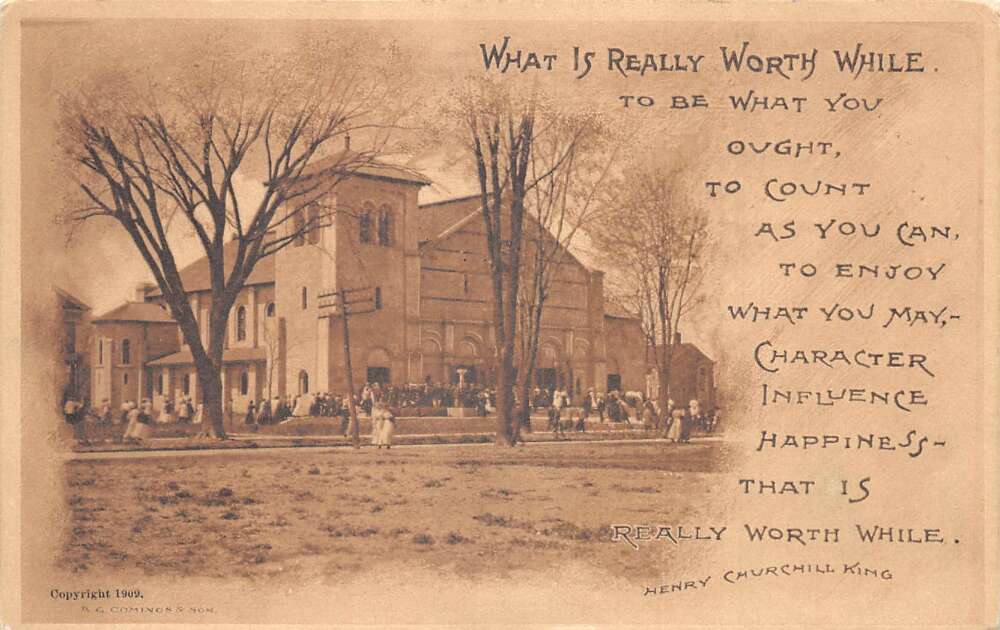 What Is Really Worth While.
To be what you
ought,
to count
as you can,
to enjoy
what you may,-
Character
Influence
Happiness-
that is
really worth while.
Henry Churchill King
Copyright 1909.
A. G. Comings & Son.